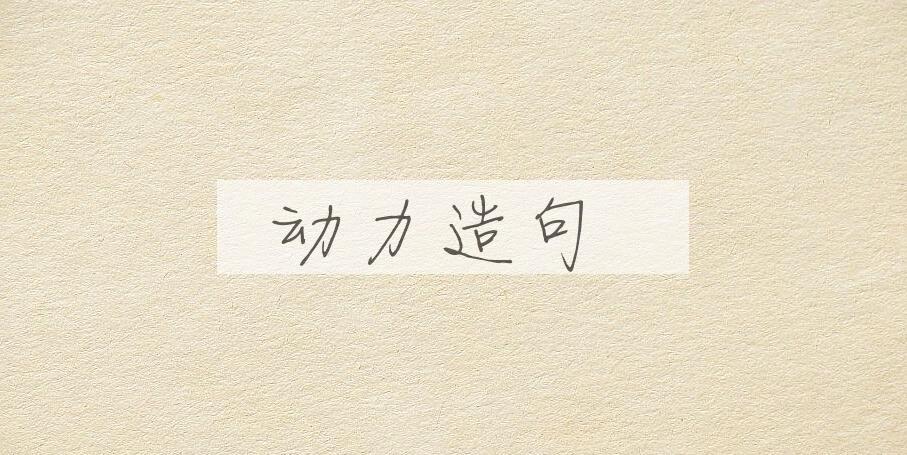 动力造句